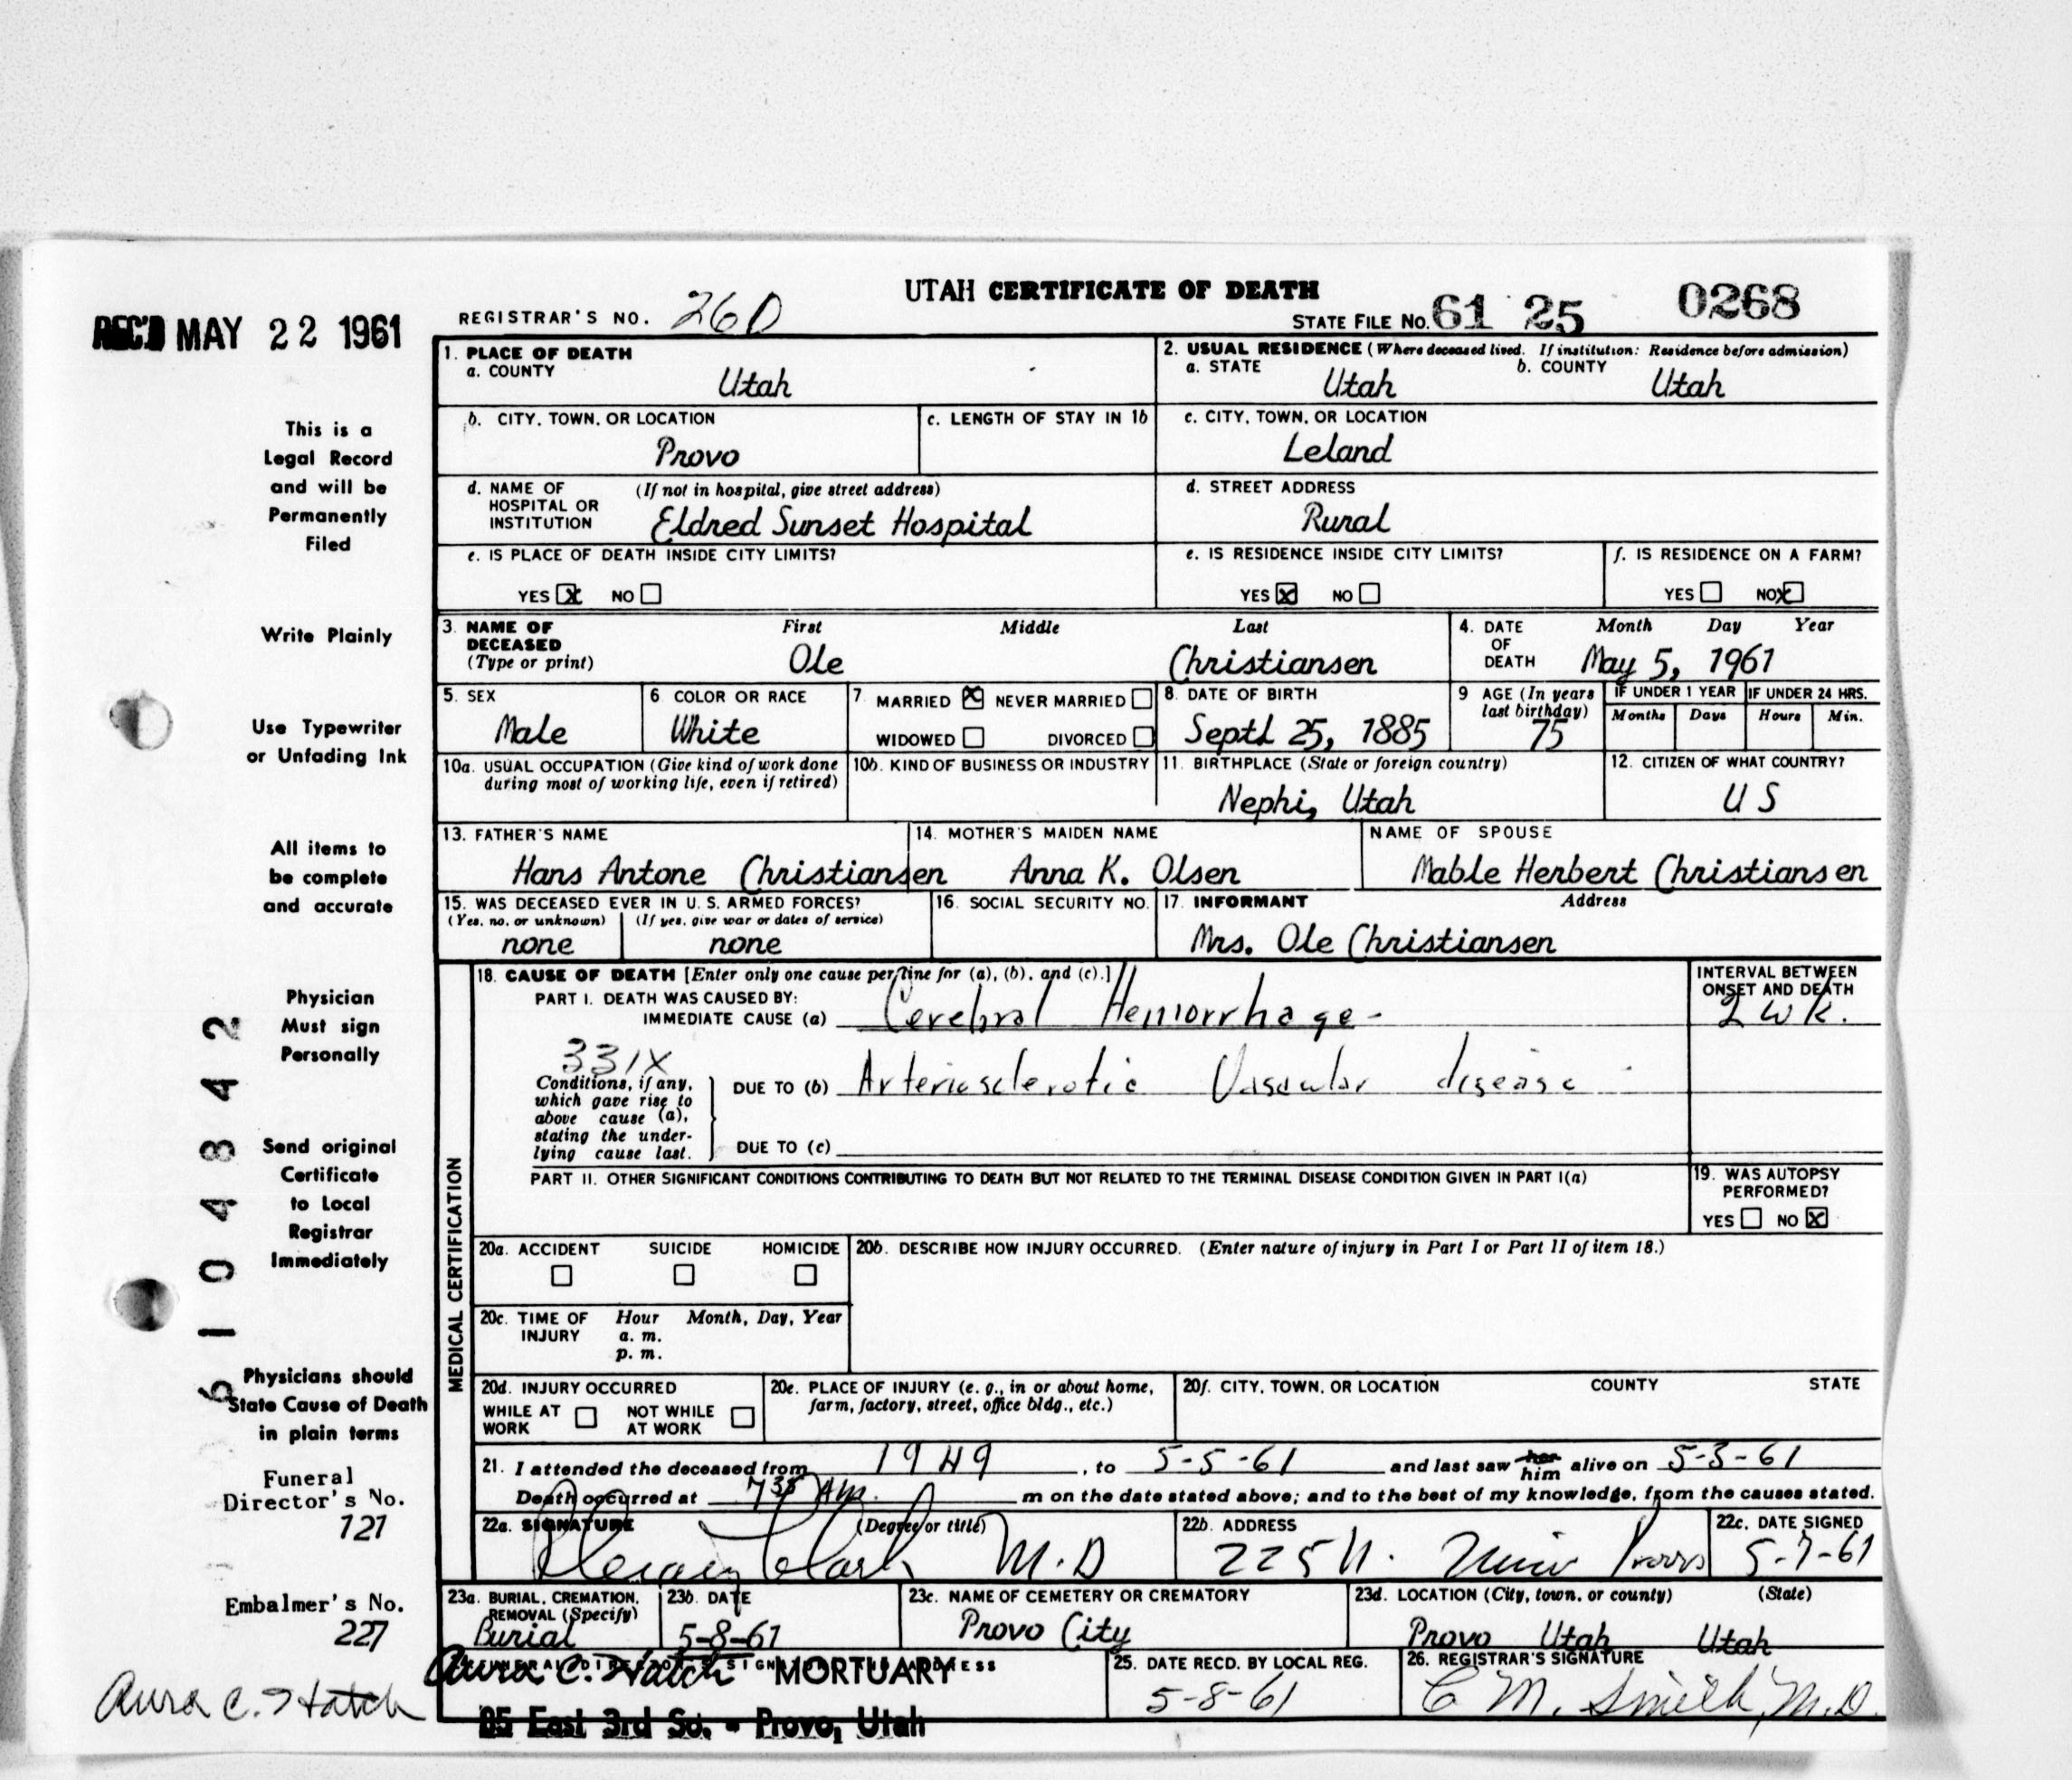 UTAH CERTIFICATE OF DEATH
REC'D MAY 22 1961
REGISTRAR'S NO. 260
STATE FILE NO. 61 25 0268
1. PLACE OF DEATH
a. COUNTY
Utah
2. USUAL RESIDENCE (Where deceased lived. If institution: Residence before admission)
a. STATE
Utah
b. COUNTY
Utah
b. CITY, TOWN, OR LOCATION
Provo
c. LENGTH OF STAY IN 1b
c. CITY, TOWN, OR LOCATION
Leland
d. NAME OF HOSPITAL OR INSTITUTION
(If not in hospital, give street address)
Eldred Sunset Hospital
d. STREET ADDRESS
Rural
e. IS PLACE OF DEATH INSIDE CITY LIMITS?
YES X NO
e. IS RESIDENCE INSIDE CITY LIMITS?
YES X NO
f. IS RESIDENCE ON A FARM?
YES NO X
3. NAME OF DECEASED (Type or print)
First Middle Last
Ole Christiansen
4. DATE OF DEATH
Month Day Year
May 5, 1961
5. SEX
Male
6 COLOR OR RACE
White
7. MARRIED X NEVER MARRIED
WIDOWED DIVORCED
8. DATE OF BIRTH
Septl 25, 1885
9 AGE (In years last birthday)
75
IF UNDER 1 YEAR
Months Days
IF UNDER 24 HRS.
Hours Min.
10a. USUAL OCCUPATION (Give kind of work done during most of working life, even if retired)
10b. KIND OF BUSINESS OR INDUSTRY
11. BIRTHPLACE (State or foreign country)
Nephi, Utah
12. CITIZEN OF WHAT COUNTRY?
U S
13. FATHER'S NAME
Hans Antone Christiansen
14. MOTHER'S MAIDEN NAME
Anna K. Olsen
NAME OF SPOUSE
Mable Herbert Christiansen
15. WAS DECEASED EVER IN U. S. ARMED FORCES?
(Yes, no, or unknown) (If yes, give war or dates of service)
none none
16. SOCIAL SECURITY NO.
17. INFORMANT Address
Mrs. Ole Christiansen
MEDICAL CERTIFICATION
18. CAUSE OF DEATH [Enter only one cause per line for (a), (b), and (c).]
PART I. DEATH WAS CAUSED BY:
IMMEDIATE CAUSE (a) Cerebral Hemorrhage -
INTERVAL BETWEEN ONSET AND DEATH
2 wk.
331X
Conditions, if any, which gave rise to above cause (a), stating the underlying cause last.
DUE TO (b) Arteriosclerotic Vascular disease
DUE TO (c)
PART II. OTHER SIGNIFICANT CONDITIONS CONTRIBUTING TO DEATH BUT NOT RELATED TO THE TERMINAL DISEASE CONDITION GIVEN IN PART I(a)
19. WAS AUTOPSY PERFORMED?
YES NO X
20a. ACCIDENT SUICIDE HOMICIDE
20b. DESCRIBE HOW INJURY OCCURRED. (Enter nature of injury in Part I or Part II of item 18.)
20c. TIME OF INJURY
Hour Month, Day, Year
a. m.
p. m.
20d. INJURY OCCURRED
WHILE AT WORK NOT WHILE AT WORK
20e. PLACE OF INJURY (e. g., in or about home, farm, factory, street, office bldg., etc.)
20f. CITY, TOWN, OR LOCATION COUNTY STATE
21. I attended the deceased from 1949, to 5-5-61 and last saw her him alive on 5-3-61
Death occurred at 7 35 AM. m on the date stated above; and to the best of my knowledge, from the causes stated.
22a. SIGNATURE (Degree or title)
Clark M.D
22b. ADDRESS
225 N. Univ Provo
22c. DATE SIGNED
5-7-61
23a. BURIAL, CREMATION, REMOVAL (Specify)
Burial
23b. DATE
5-8-61
23c. NAME OF CEMETERY OR CREMATORY
Provo City
23d. LOCATION (City, town, or county) (State)
Provo Utah Utah
Aura C. Hatch MORTUARY
85 East 3rd So. - Provo, Utah
25. DATE RECD. BY LOCAL REG.
5-8-61
26. REGISTRAR'S SIGNATURE
C M. Smith, M.D.
This is a
Legal Record
and will be
Permanently
Filed
Write Plainly
Use Typewriter
or Unfading Ink
All items to
be complete
and accurate
Physician
Must sign
Personally
Send original
Certificate
to Local
Registrar
Immediately
Physicians should
State Cause of Death
in plain terms
Funeral
Director's No.
121
Embalmer's No.
227
Aura C. Hatch
6 1 0 4 8 4 2